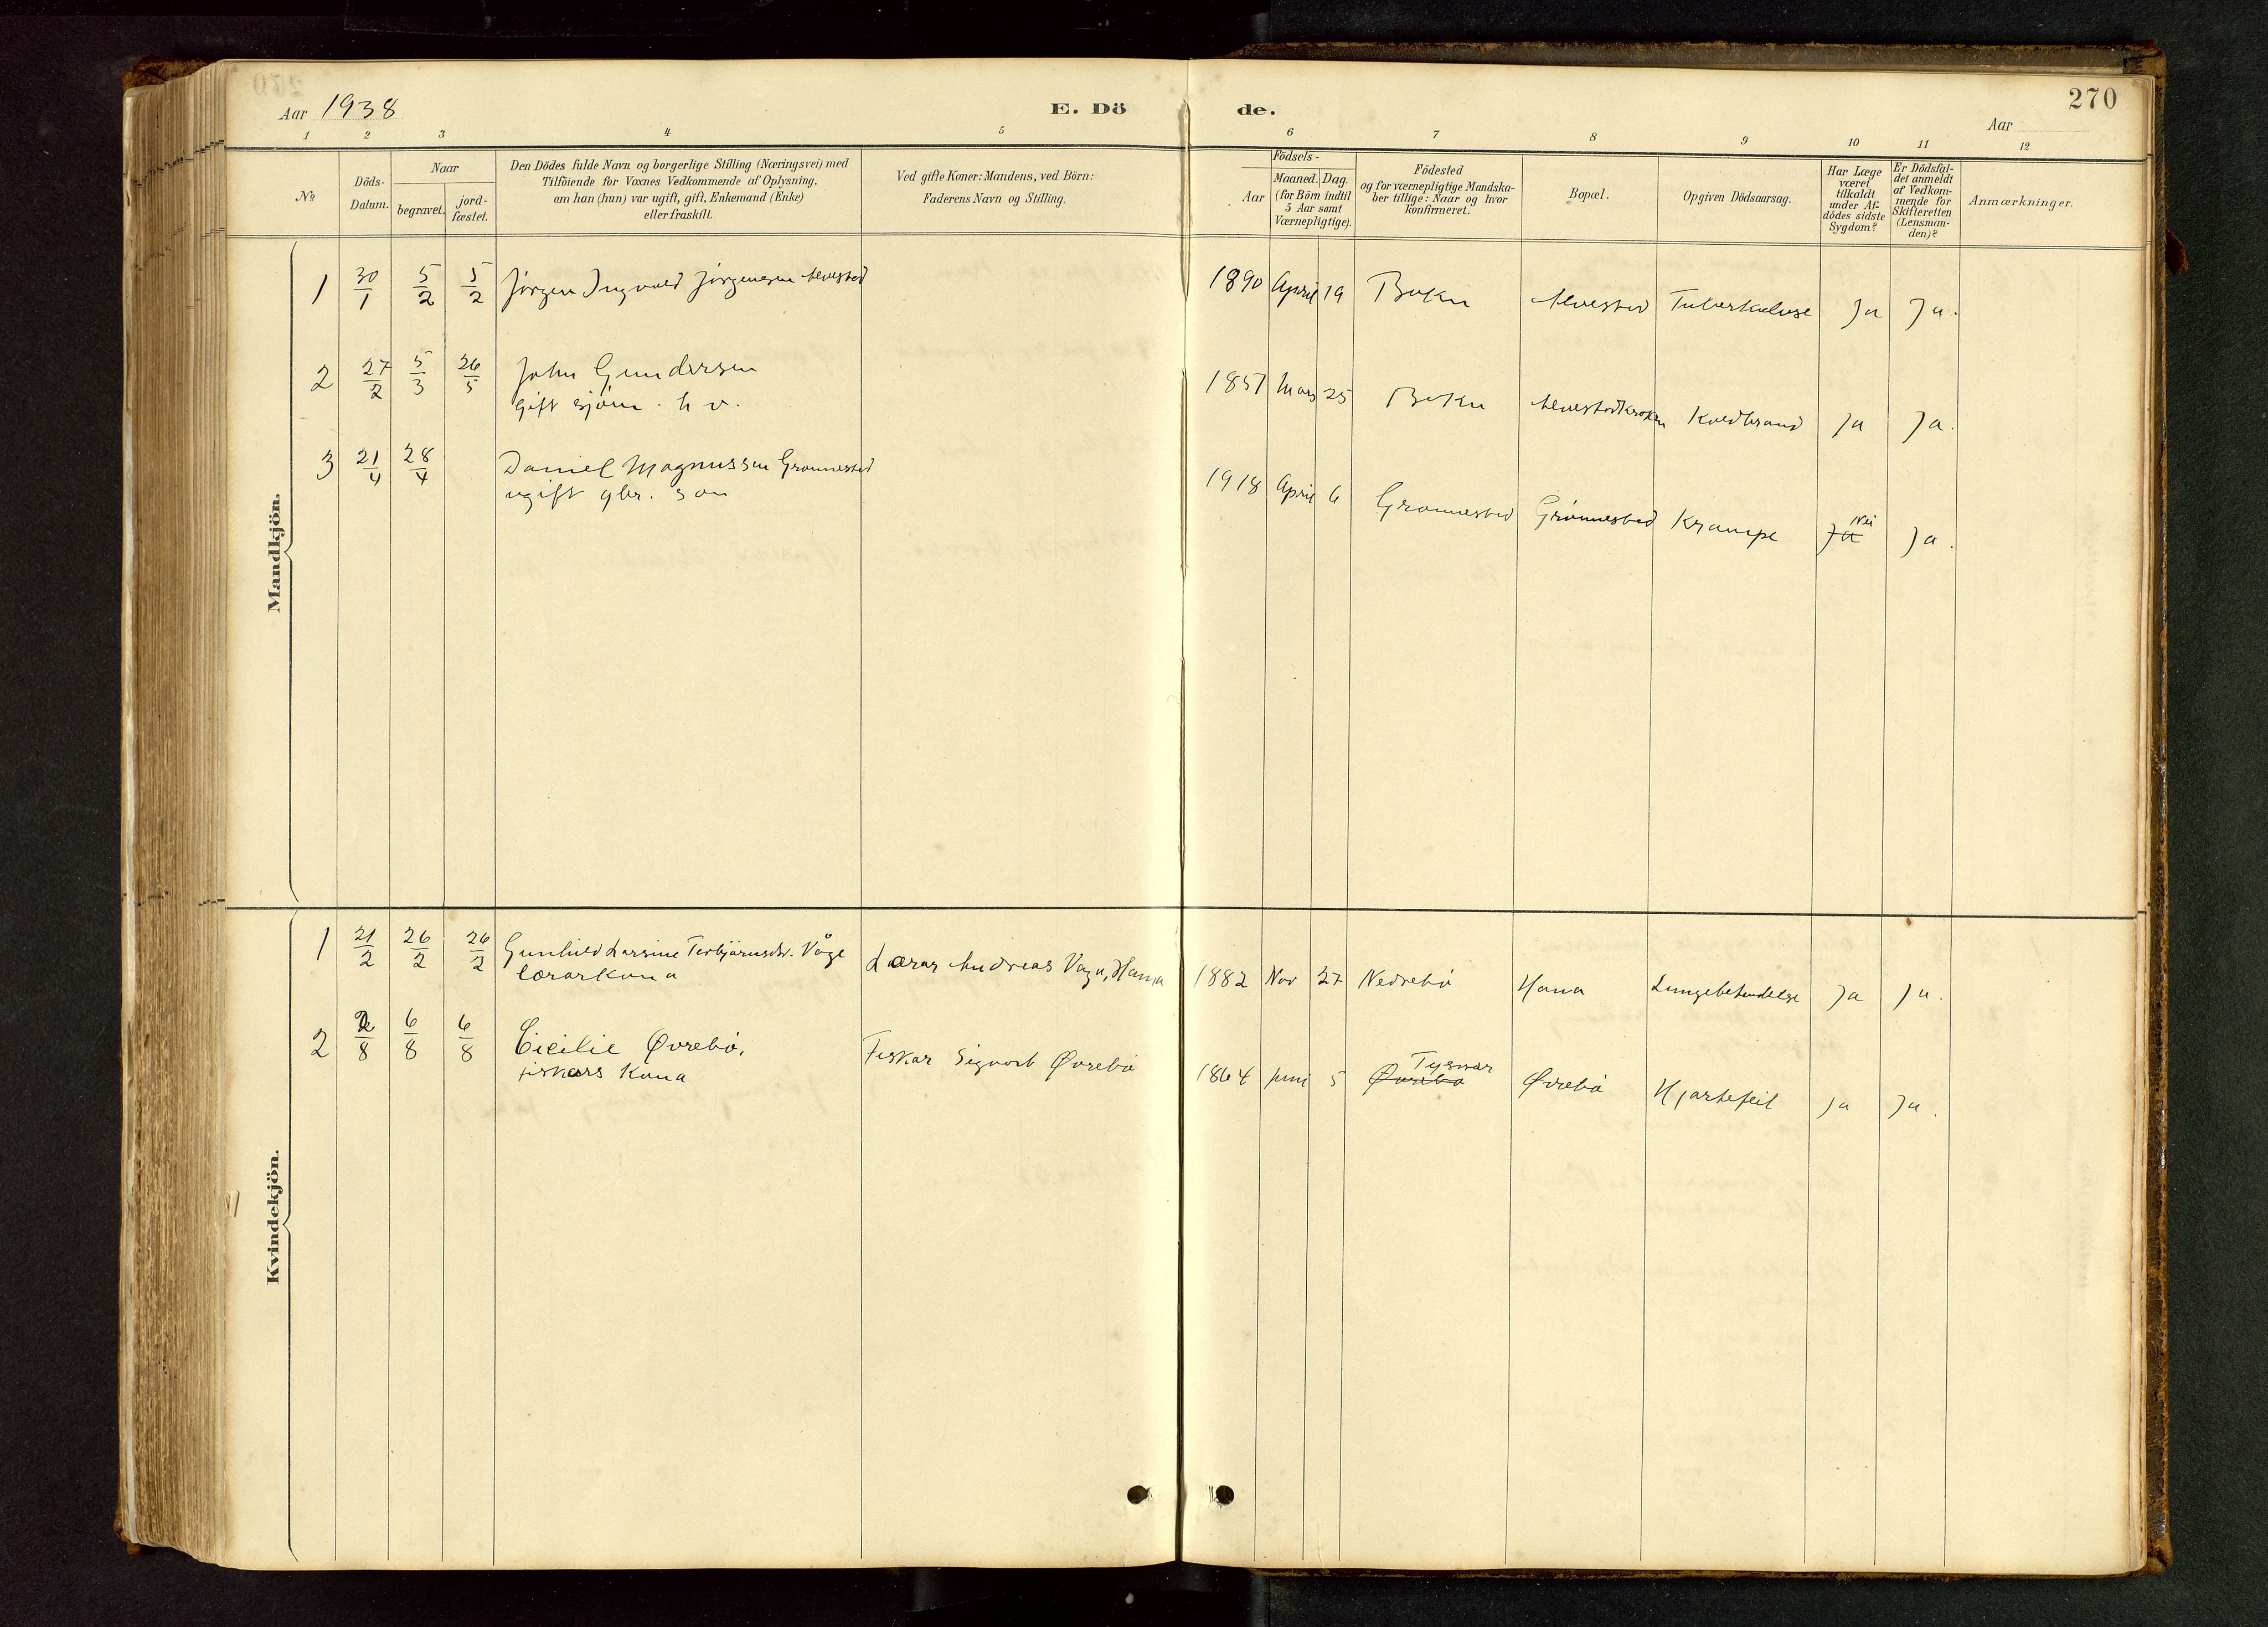 270
Aar 1938
E. Dö
de.
Aar
1 2 3 4 5 6 7 8 9 10 11 12
No
Döds-
Datum.
Naar
begravet.
jord-
fæstet.
Den Dödes fulde Navn og borgerlige Stilling (Næringsvei) med
Tilföiende for Voxnes Vedkommende af Oplysning,
om han (hun) var ugift, gift, Enkemand (Enke)
eller fraskilt.
Ved gifte Koner: Mandens, ved Börn:
Faderens Navn og Stilling.
Födsels-
Aar
Maaned. Dag.
(for Börn indtil
5 Aar samt
Værnepligtige).
Födested
og for værnepligtige Mandska-
ber tillige: Naar og hvor
konfirmeret.
Bopæl.
Opgiven Dödsaarsag.
Har Læge
været
tilkaldt
under Af-
dödes sidste
Sygdom?
Er Dödsfal-
det anmeldt
af Vedkom-
mende for
Skifteretten
(Lensman-
den)?
Anmærkninger.
Mandkjön.
1 30/1 5/2 5/2 Jørgen Ingvald Jørgensen Alvestad 1890 April 19 Bokn Alvestad Tuberkulose Ja Ja.
2 27/2 5/3 26/5 John Gundersen
gift sjöm. h v. 1857 Mars 25 Bokn Alvestadkroken Koldbrand Ja Ja.
3 21/4 28/4 Daniel Magnussen Grønnestad
ugift gbr. son 1918 April 6 Grønnestad Grønnestad Krampe Ja Nei Ja.
Kvindekjön.
1 21/2 26/2 26/2 Gunhild Larsine Torbjørnsdr. Våge
lærarkona Lærar Andreas Våga, Hama 1882 Nov 27 Nedrebø Hama Lungebetendelse Ja Ja.
2 2/8 6/8 6/8 Cicilie Øvrebø,
fiskars kona Fiskar Sigvart Øvrebø 1864 Juni 5 Øvrebø Tysvær Øvrebø Hjartefeil Ja Ja.